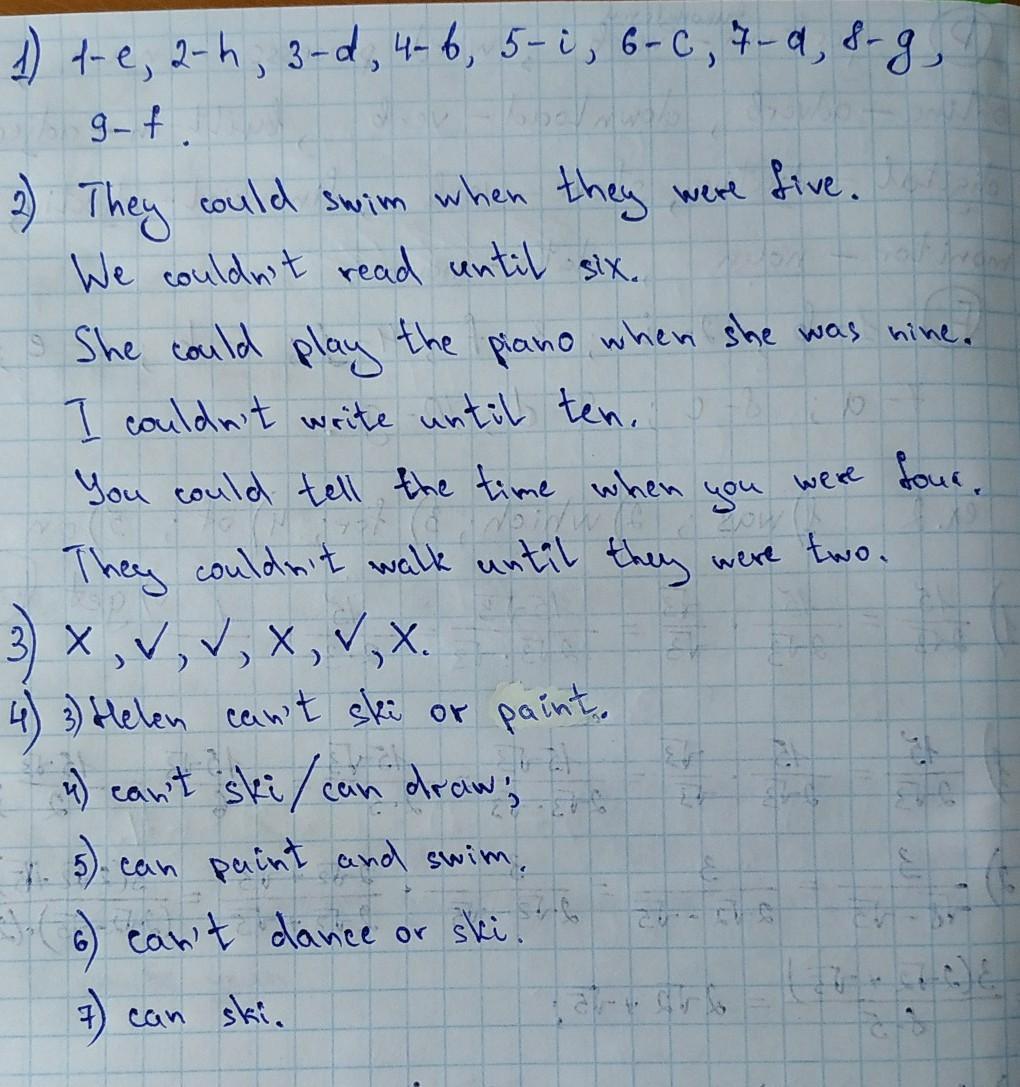 1) 1-e, 2-h, 3-d, 4-b, 5-i, 6-c, 7-a, 8-g,
9-f.
2) They could swim when they were five.
We couldn't read until six.
She could play the piano when she was nine.
I couldn't write until ten.
You could tell the time when you were four.
They couldn't walk until they were two.
3) X, ✓, ✓, X, ✓, X.
4) 3) Helen can't ski or paint.
4) can't ski/can draw;
5) can paint and swim.
6) can't dance or ski.
7) can ski.